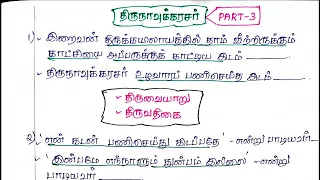 திருநாவுக்கரசர் PART-3
1). இறைவன் திருக்கயிலாயத்தில் தாம் வீற்றிருக்கும்
காட்சியை அப்பருக்குக் காட்டிய இடம்
திருநாவுக்கரசர் உழவாரப் பணிசெய்த இடம்
திருவையாறு
திருவதிகை
2). 'என் கடன் பணிசெய்து கிடப்பதே' -என்று பாடியவர்
'இன்பமே எந்நாளும் துன்பம் இல்லை' -என்று
பாடியவர்